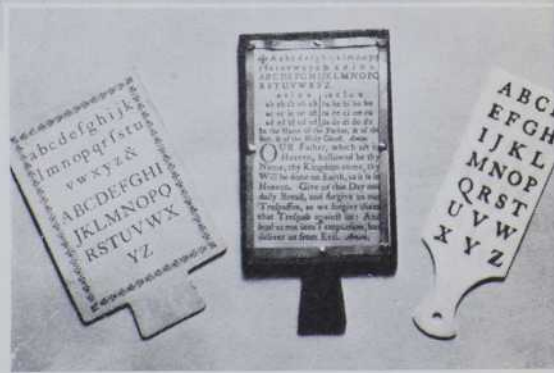 abcdefghijk
lmnopqrfstu
vwxyz&
ABCDEFGHI
JKLMNOPQ
RSTUVWX
YZ
RSTUVWXYZ.
In the Name of the Father, & of the
OUR Father, which art in
Heaven, hallowed be thy
Name; thy Kingdom come, thy
Will be done on Earth, as it is in
Heaven. Give us this Day our
daily Bread, and forgive us our
Trespasses, as we forgive them
that Trespass against us: And
lead us not into Temptation, but
deliver us from Evil. Amen.
ABCD
EFGH
IJKL
MNOP
QRST
UVW
XYZ